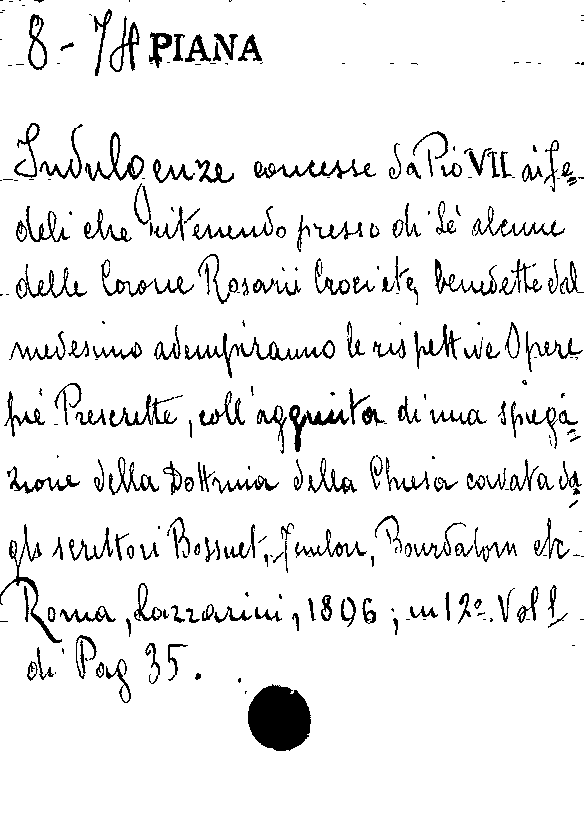 8 - 7H PIANA
Indulgenze concesse da Pio VII ai fe=
deli che ritenendo presso di Sè alcune
delle Corone Rosarii Croci etc, benedette dal
medesimo adempiranno le rispettive Opere
pié Prescrette, coll'aggiunta di una spiega=
zione della Dottrina della Chiesa cavata da=
gli scrittori Bossuet, Fenelon, Bourdalom etc
Roma, Lazzarini, 1806; in 12º. Vol 1
di Pag 35.